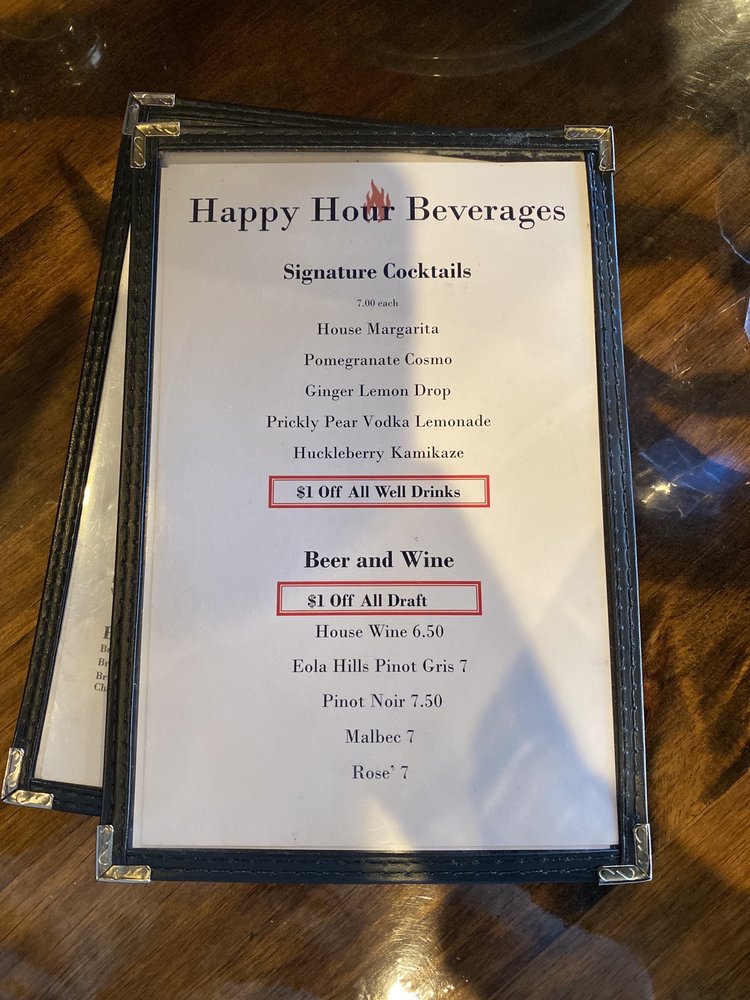 Happy Hour Beverages
Signature Cocktails
7.00 each
House Margarita
Pomegranate Cosmo
Ginger Lemon Drop
Prickly Pear Vodka Lemonade
Huckleberry Kamikaze
$1 Off All Well Drinks
Beer and Wine
$1 Off All Draft
House Wine 6.50
Eola Hills Pinot Gris 7
Pinot Noir 7.50
Malbec 7
Rose' 7